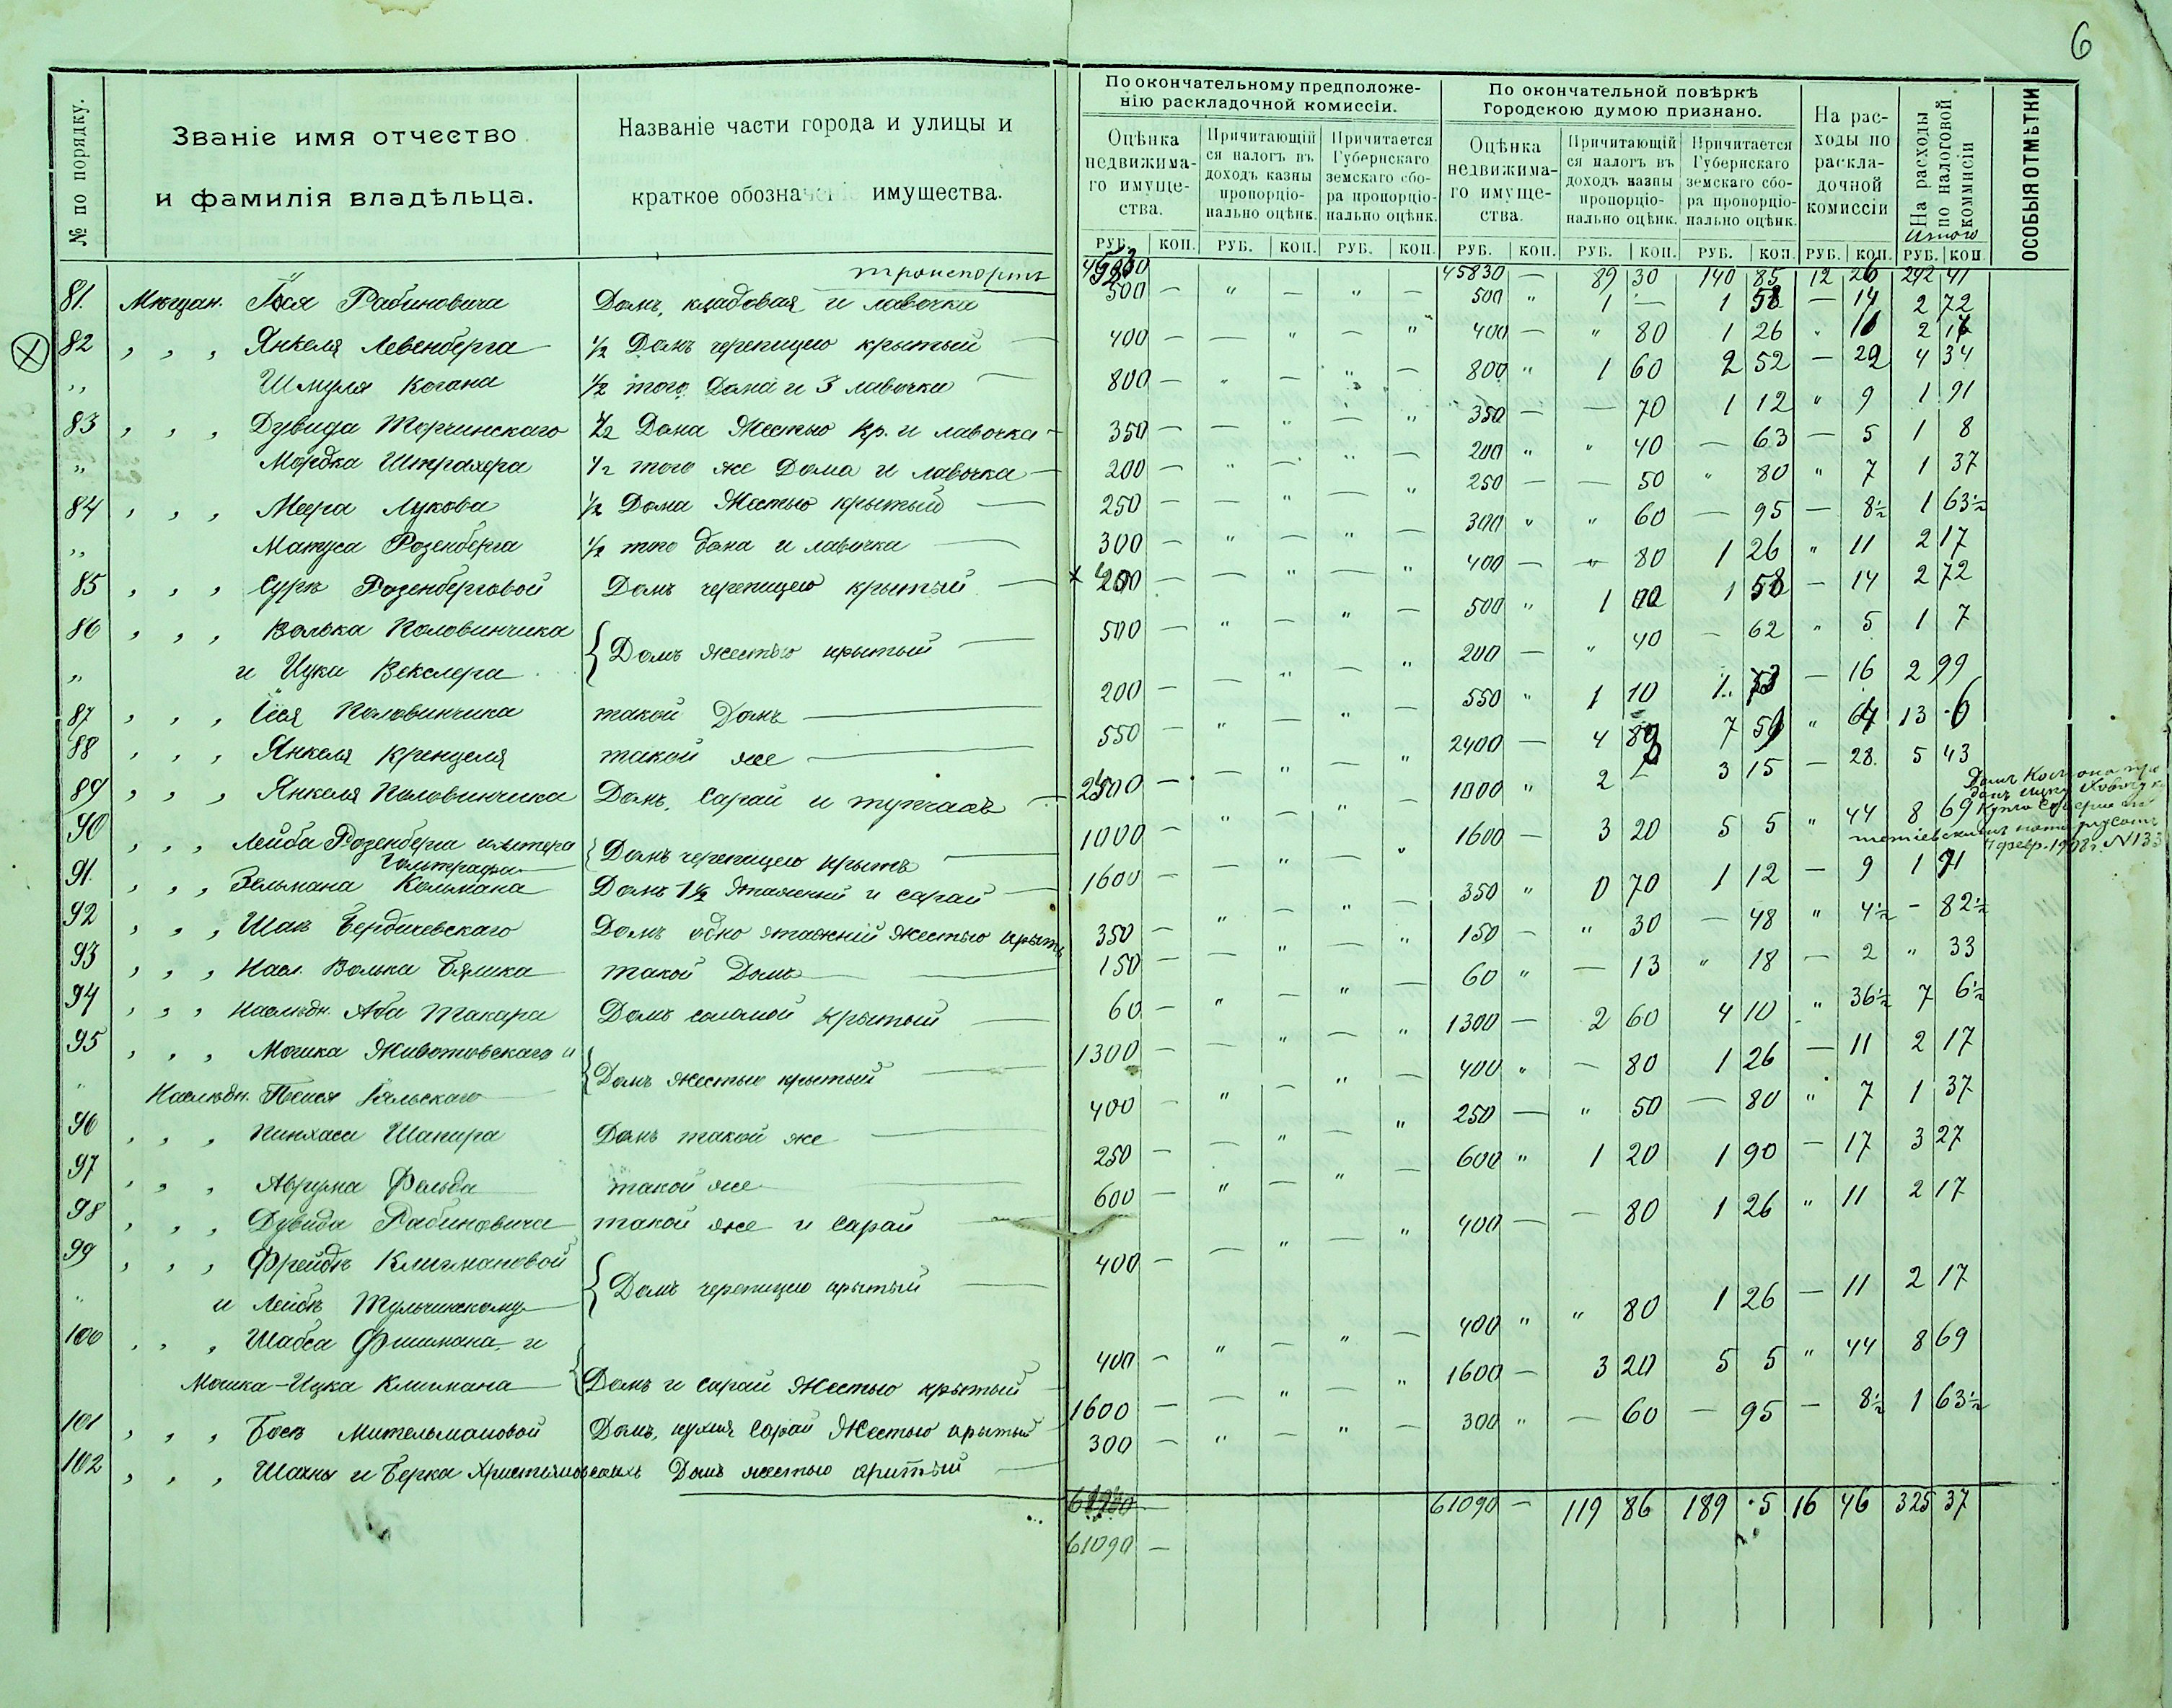 6
№ по порядку.
Званіе имя отчество и фамилія владѣльца.
Названіе части города и улицы и краткое обозначеніе имущества.
По окончательному предположенію раскладочной комиссіи.
Оцѣнка недвижимаго имущества.
Причитающійся налогъ въ доходъ казны пропорціонально оцѣнк.
Причитается Губернскаго земскаго сбора пропорціонально оцѣнк.
По окончательной повѣркѣ Городскою думою признано.
Оцѣнка недвижимаго имущества.
Причитающійся налогъ въ доходъ казны пропорціонально оцѣнк.
Причитается Губернскаго земскаго сбора пропорціонально оцѣнк.
На расходы по раскладочной комиссіи
На расходы по налоговой коммисіи
Итого
ОСОБЫЯ ОТМѢТКИ
РУБ. КОП. РУБ. КОП. РУБ. КОП. РУБ. КОП. РУБ. КОП. РУБ. КОП. РУБ. КОП. РУБ. КОП.
транспортъ 45830 — 89 30 140 85 12 26 242 41
81. Мѣщан. Іося Рабиновича Домъ, кладовая и лавочка 500 — " — " — 500 " 1 — 1 58 — 14 2 72
82 , , , Янкеля Левенберга 1/2 Домъ черепицею крытый 400 — — " — " 400 — " 80 1 26 " 11 2 17
,, Шмуля Когана 1/2 того Дома и 3 лавочки 800 — " — " — 800 " 1 60 2 52 — 22 4 34
83 , , , Дувида Торчинскаго 1/2 Дома Жестью кр. и лавочка 350 — — " — " 350 — — 70 1 12 " 9 1 91
,, Мордка Штрахера 1/2 того же Дома и лавочка 200 — " — " — 200 " " 40 — 63 — 5 1 8
84 , , , Меера Лукова 1/2 Дома Жестью крытый 250 — — " — " 250 — — 50 " 80 " 7 1 37
,, Матуса Розенберга 1/2 того дома и лавочка 300 — " — " — 300 " " 60 — 95 — 8½ 1 63½
85 , , , Сурѣ Розенберговой Домъ черепицею крытый — — " — " 400 — " 80 1 26 " 11 2 17
86 , , , Волька Половинчика { Домъ жестью крытый 500 — " — " — 500 " 1 00 1 58 — 14 2 72
,, и Ицка Векслера
87 , , , Іося Половинчика такой Домъ 200 — — " — " 200 — " 40 — 62 " 5 1 7
88 , , , Янкеля Кренцеля такой же 550 — " — " — 550 " 1 10 1 73 — 16 2 99
89 , , , Янкеля Половинчика Домъ, Сарай и — — " — " 2400 — 4 80 7 59 " 64 13 6
90 , , , Лейба Розенберга { Домъ черепицею крытъ 1000 — " — " — 1000 " 2 — 3 15 — 28 5 43
91. , , , Зельмана Кольмана Домъ 1½ этажный и сарай 1600 — — " — " 1600 — 3 20 5 5 " 44 8 69
Домъ
февр. 1908 г. N 133
92 , , , Шаи Бердичевскаго Домъ одно этажній жестью крытъ 350 — " — " — 350 " 0 70 1 12 — 9 1 91
93 , , , Насл. Волька Бялика такой Домъ 150 — — " — " 150 — " 30 — 48 " 4½ — 82½
94 , , , Наслѣдн. Аба Токара Домъ соломой крытый 60 — " — " — 60 " — 13 " 18 — 2 " 33
95 , , , Мошка Животовскаго и { Домъ жестью крытый 1300 — — " — " 1300 — 2 60 4 10 " 36½ 7 6½
" Наслѣдн. Пейся Бѣльскаго
96 , , , Пинхаса Шапира Домъ такой же 400 — " — " — 400 " — 80 1 26 — 11 2 17
97 , , , Аврума Фельда такой же 250 — — " — " 250 — " 50 — 80 " 7 1 37
98 , , , Дувида Рабиновича такой же и Сарай 600 — " — " — 600 " 1 20 1 90 — 17 3 27
99 , , , Фрейдѣ Клигмановой { Домъ черепицею крытый 400 — — " — " 400 — — 80 1 26 " 11 2 17
" и Лейбѣ Тульчинскому
100 , , , Шабса Фишмана и 400 — " — " — 400 " " 80 1 26 — 11 2 17
Мошка-Ицка Клигмана { Домъ и сарай Жестью крытый 1600 — — " — " 1600 — 3 20 5 5 " 44 8 69
101 , , , Босѣ Мительмановой Домъ, кухня Сарай Жестью крытый 300 — " — " — 300 " — 60 — 95 — 8½ 1 63½
102 , , , Шахны и Берка Христиновскихъ Домъ жестью крытый
61090 — 119 86 189 5 16 46 325 37
61090 —